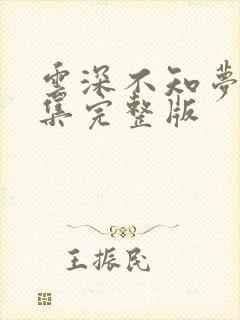 雲深不知夢
集完整版
王振民